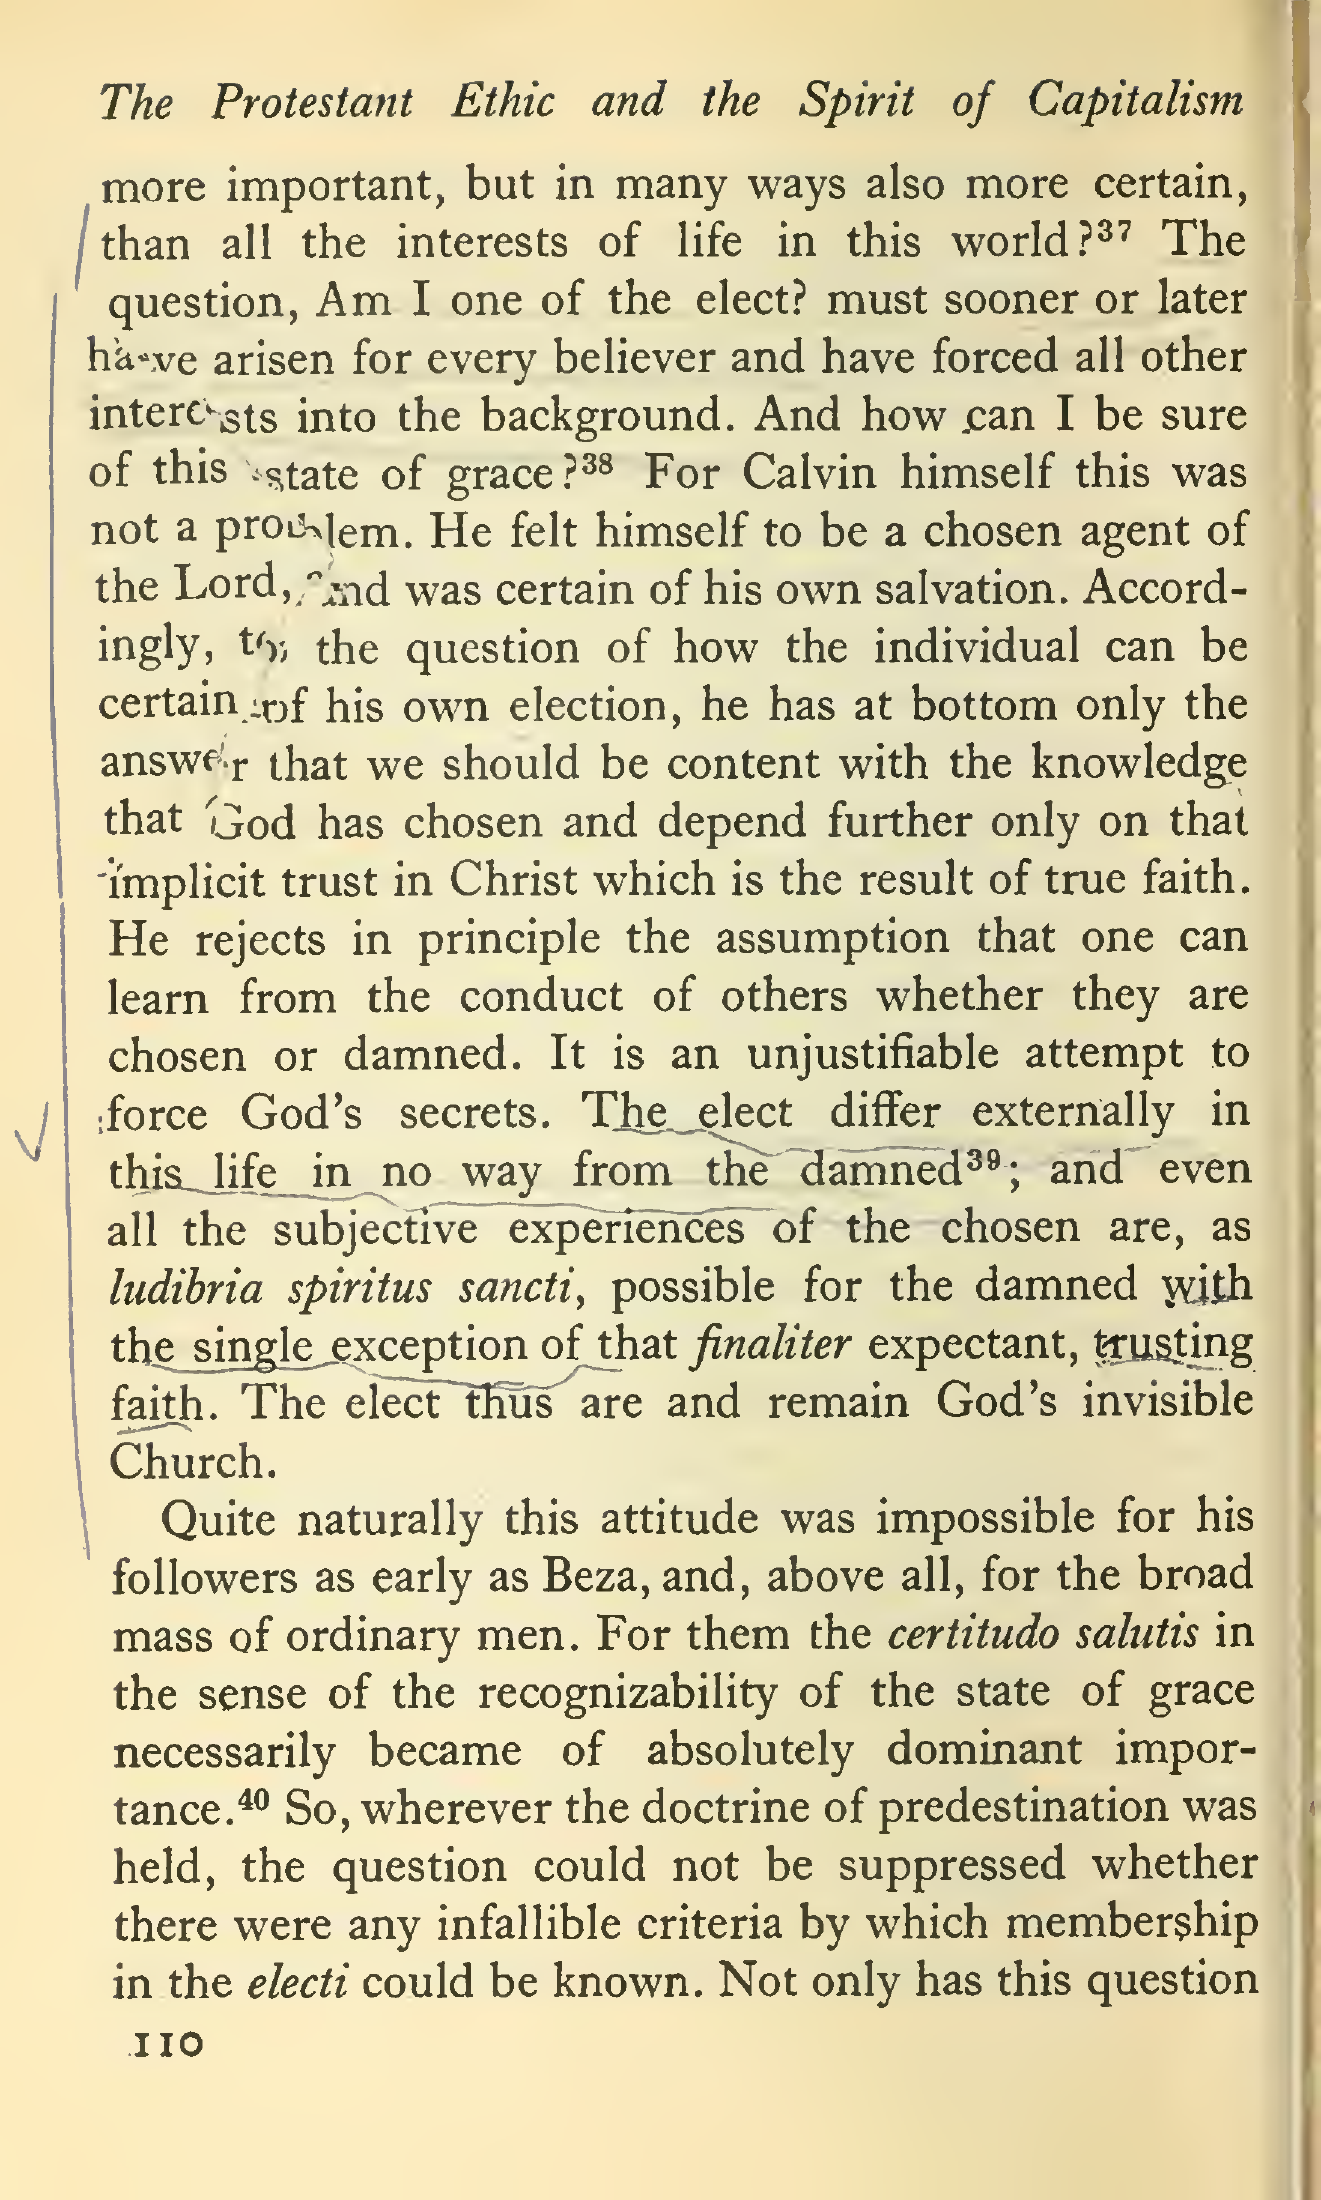 The Protestant Ethic and the Spirit of Capitalism
more important, but in many ways also more certain,
than all the interests of life in this world?³⁷ The
question, Am I one of the elect? must sooner or later
have arisen for every believer and have forced all other
interests into the background. And how can I be sure
of this state of grace?³⁸ For Calvin himself this was
not a problem. He felt himself to be a chosen agent of
the Lord, and was certain of his own salvation. Accord-
ingly, to the question of how the individual can be
certain of his own election, he has at bottom only the
answer that we should be content with the knowledge
that God has chosen and depend further only on that
implicit trust in Christ which is the result of true faith.
He rejects in principle the assumption that one can
learn from the conduct of others whether they are
chosen or damned. It is an unjustifiable attempt to
force God's secrets. The elect differ externally in
this life in no way from the damned³⁹; and even
all the subjective experiences of the chosen are, as
ludibria spiritus sancti, possible for the damned with
the single exception of that finaliter expectant, trusting
faith. The elect thus are and remain God's invisible
Church.
Quite naturally this attitude was impossible for his
followers as early as Beza, and, above all, for the broad
mass of ordinary men. For them the certitudo salutis in
the sense of the recognizability of the state of grace
necessarily became of absolutely dominant impor-
tance.⁴⁰ So, wherever the doctrine of predestination was
held, the question could not be suppressed whether
there were any infallible criteria by which membership
in the electi could be known. Not only has this question
110